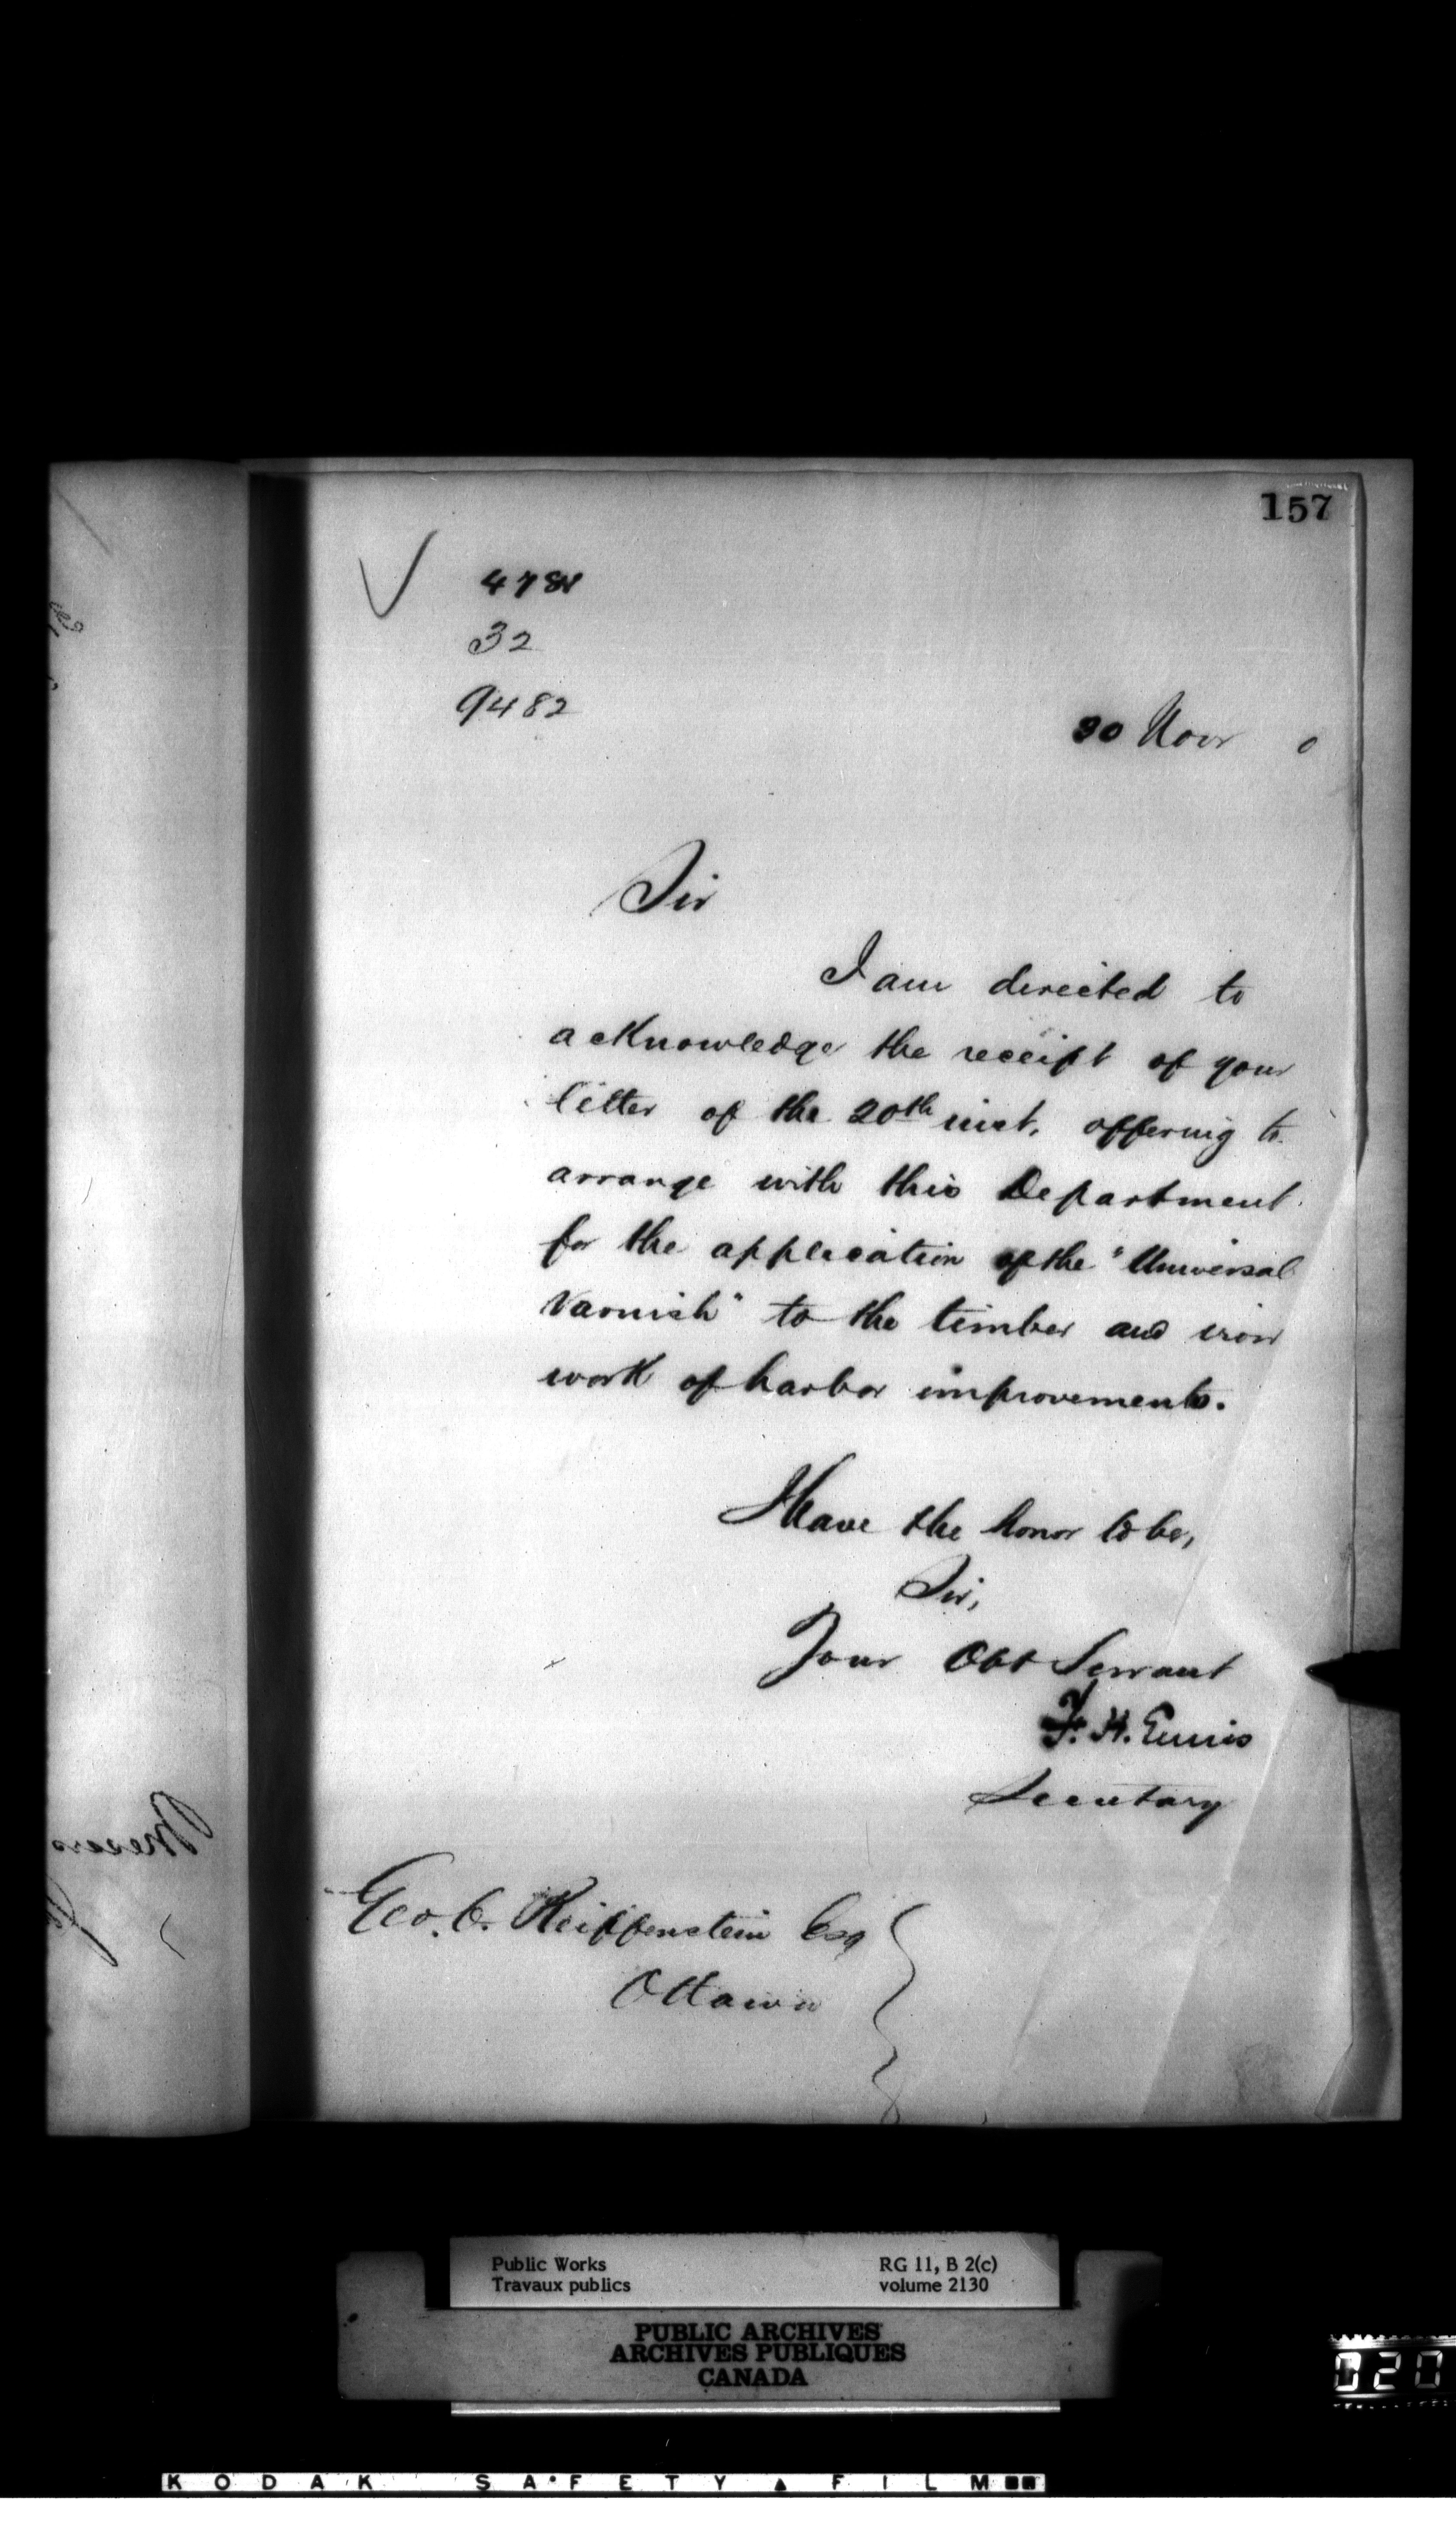 157
32
9482
30 Novr 0
Sir
I am directed to
acknowledge the receipt of your
letter of the 20th inst. offering to
arrange with this Department
for the application of the "Universal
Varnish" to the timber and iron
work of harbor improvements.
I have the honor to be,
Sir,
Your Obt Servant
F. H. Ennis
Secretary
Geo. C. Reiffenstein Esq
Ottawa
Messrs
Public Works
Travaux publics
RG 11, B 2(c)
volume 2130
PUBLIC ARCHIVES
ARCHIVES PUBLIQUES
CANADA
020
KODAK SAFETY FILM